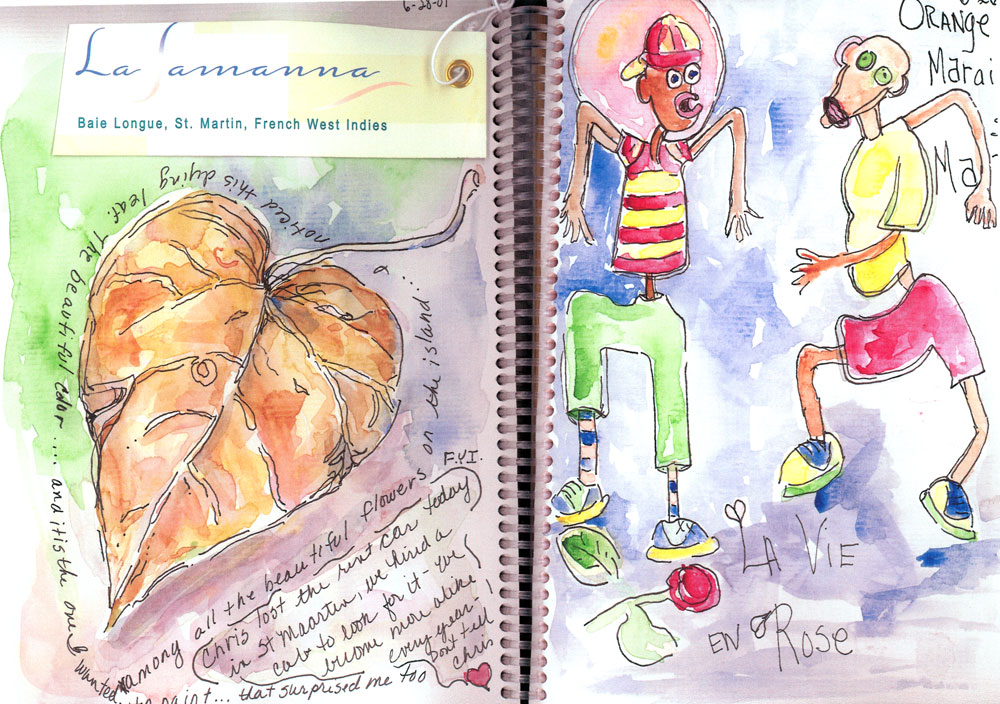 6-28-01
La Samanna
Baie Longue, St. Martin, French West Indies
noticed this dying leaf. The beautiful color.... and it is the one I wanted to paint... that surprised me too
among all the beautiful flowers on the island...
F.Y.I.
Chris lost the rent car today
in St Maarten, we hired a
cab to look for it - we've
become more alike
every year.
Don't tell
Chris
Orange
Marai
Ma
La Vie
en Rose